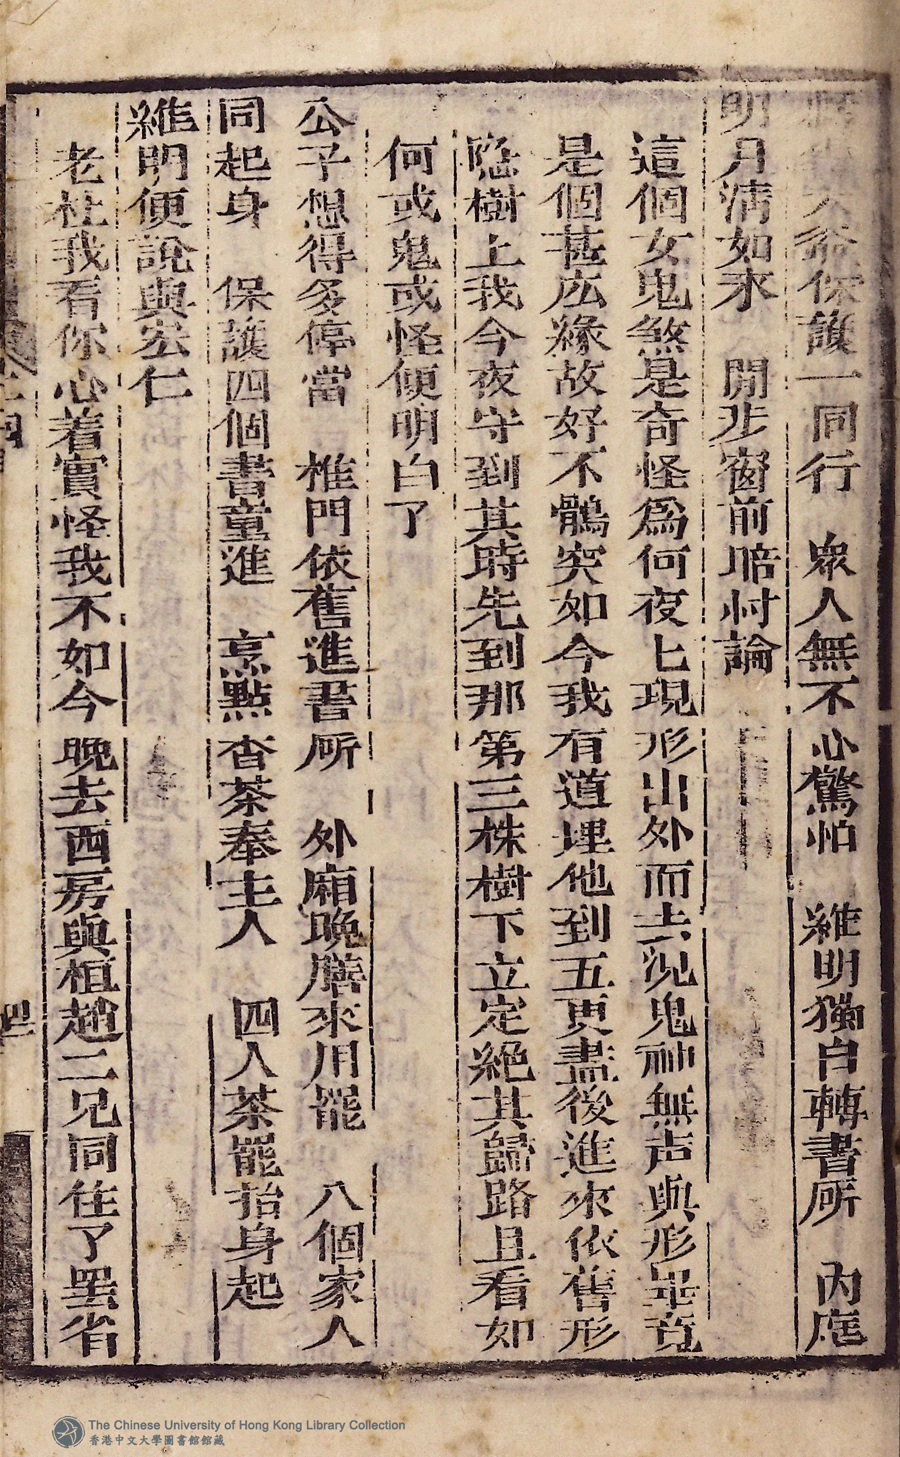 保護一同行 眾人無不心驚怕 維明獨自轉書所 內庭
明月清如水 閒步窗前暗忖論
這個女鬼煞是奇怪爲何夜上現形出外而去況鬼神無声與形畢竟
是個甚庅緣故好不鶻突如今我有道理他到五更盡後進來依舊形
隐樹上我今夜守到其時先到那第三株樹下立定絕其歸路且看如
何或鬼或怪便明白了
公子想得多停當 椎門依舊進書所 外廂晚膳來用罷 八個家人
同起身 保護四個書童進 烹點杳茶奉主人 四人茶罷抬身起
維明便說與宏仁
老杜我看你心着實怪我不如今晚去西房與桓趙二兄同住了罢省
The Chinese University of Hong Kong Library Collection
香港中文大學圖書館館藏